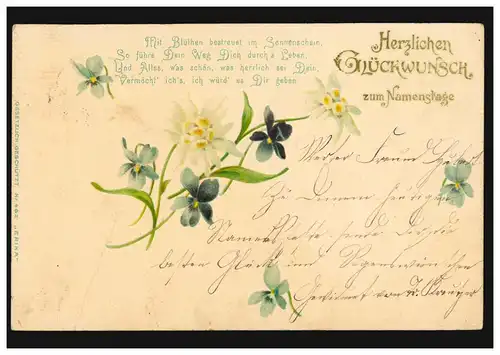 Mit Blüthen bestreuet im Sonnenschein,
So führe Dein Weg Dich durch's Leben.
Und Alles, was schön, was herrlich sei Dein,
Vermöcht' ich's, ich würd' es Dir geben
Herzlichen
GLÜCKWUNSCH
zum Namenstage
GESETZLICH GESCHÜTZT. "ERIKA"
Werther Freund Hubert
Zu Deinem heutigen
Namensfeste sende Dir die
besten Glück und Segenswünschen
Gewidmet von